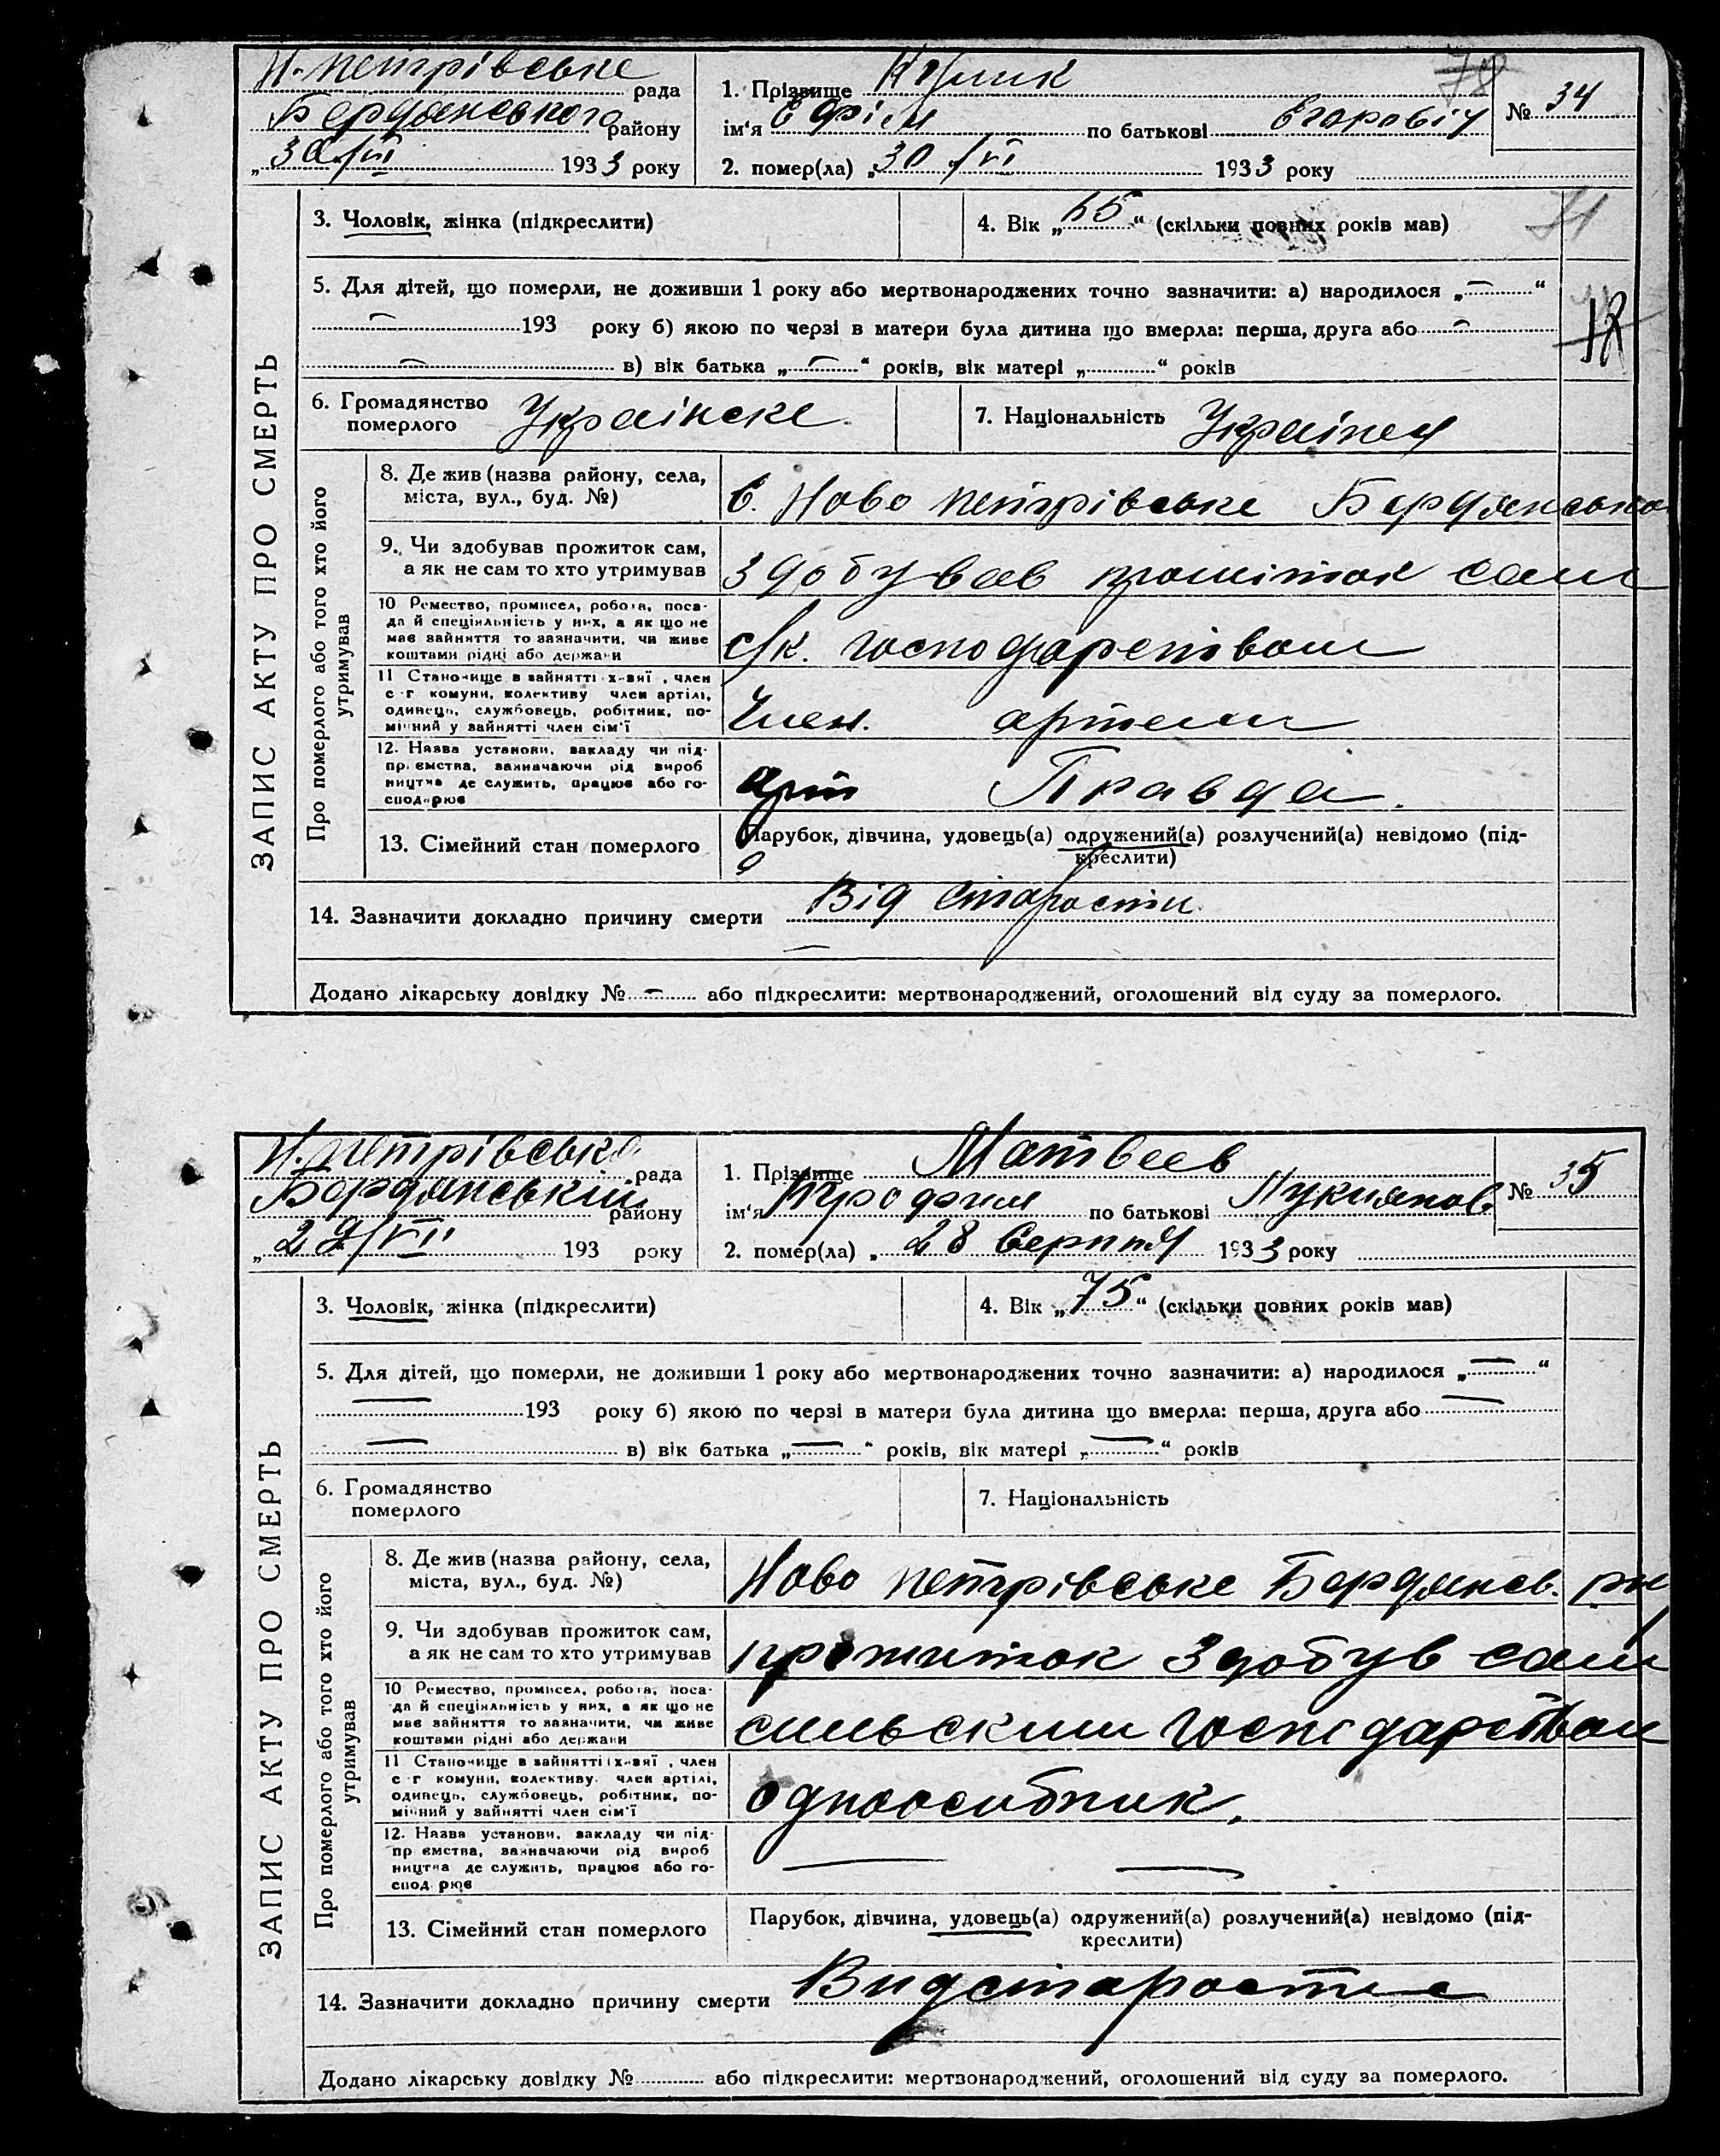 Н. Петрівське рада
Бердянського району
„30/VI 1933 року
1. Прізвище
ім'я Єфім по батькові Егоровіч
2. помер(ла) „30/VI 1933 року
№ 34
78
3. Чоловік, жінка (підкреслити)
4. Вік „65“ (скільки повних років мав)
71
5. Для дітей, що померли, не доживши 1 року або мертвонароджених точно зазначити: а) народилося „—“
— 193 року б) якою по черзі в матери була дитина що вмерла: перша, друга або —
— в) вік батька „—“ років, вік матері „“ років
12
6. Громадянство
померлого Українске.
7. Національність Українец
ЗАПИС АКТУ ПРО СМЕРТЬ
Про померлого або того хто його
утримував
8. Де жив (назва району, села,
міста, вул., буд. №)
с. Ново Петрівське Бердянсько
9. Чи здобував прожиток сам,
а як не сам то хто утримував
Здобував прожіток сам
10 Ремество, промисел, робота, поса-
да й спеціяльність у них, а як що не
має зайняття то зазначити, чи живе
коштами рідні або держави
с/к. господарством
11 Становище в зайнятті х-вяї, член
с-г комуни, колективу член артілі,
одинець, службовець, робітник, по-
мічний у зайнятті член сім'ї
Член. артели
12. Назва установи, закладу чи під-
приємства, зазначаючи рід вироб
ництва де служить, працює або го-
сподарює
арт Правда.
13. Сімейний стан померлого
Парубок, дівчина, удовець(а) одружений(а) розлучений(а) невідомо (під-
креслити)
14. Зазначити докладно причину смерти Від старости
Додано лікарську довідку № — або підкреслити: мертвонароджений, оголошений від суду за померлого.
Н. Петрівська рада
Бердянський району
„29/VII 193 року
1. Прізвище Матвеев
ім'я Трофим по батькові Лукиянов.
2. помер(ла) „28 Серпня 1933 року
№ 35
3. Чоловік, жінка (підкреслити)
4. Вік „75“ (скільки повних років мав)
5. Для дітей, що померли, не доживши 1 року або мертвонароджених точно зазначити: а) народилося „—“
— 193 року б) якою по черзі в матери була дитина що вмерла: перша, друга або —
— в) вік батька „—“ років, вік матері „—“ років
6. Громадянство
померлого
7. Національність
ЗАПИС АКТУ ПРО СМЕРТЬ
Про померлого або того хто його
утримував
8. Де жив (назва району, села,
міста, вул., буд. №)
Ново Петрівське Бердянсв. рн
9. Чи здобував прожиток сам,
а як не сам то хто утримував
прожиток Здобув сам
10 Ремество, промисел, робота, поса-
да й спеціяльність у них, а як що не
має зайняття то зазначити, чи живе
коштами рідні або держави
сильским господарством
11 Становище в зайнятті х-вяї, член
с-г комуни, колективу член артілі,
одинець, службовець, робітник, по-
мічний у зайнятті член сім'ї
одноосибник.
12. Назва установи, закладу чи під-
приємства, зазначаючи рід вироб
ництва де служить, працює або го-
сподарює
— —
13. Сімейний стан померлого
Парубок, дівчина, удовець(а) одружений(а) розлучений(а) невідомо (під-
креслити)
14. Зазначити докладно причину смерти Вид старости
Додано лікарську довідку № або підкреслити: мертвонароджений, оголошений від суду за померлого.